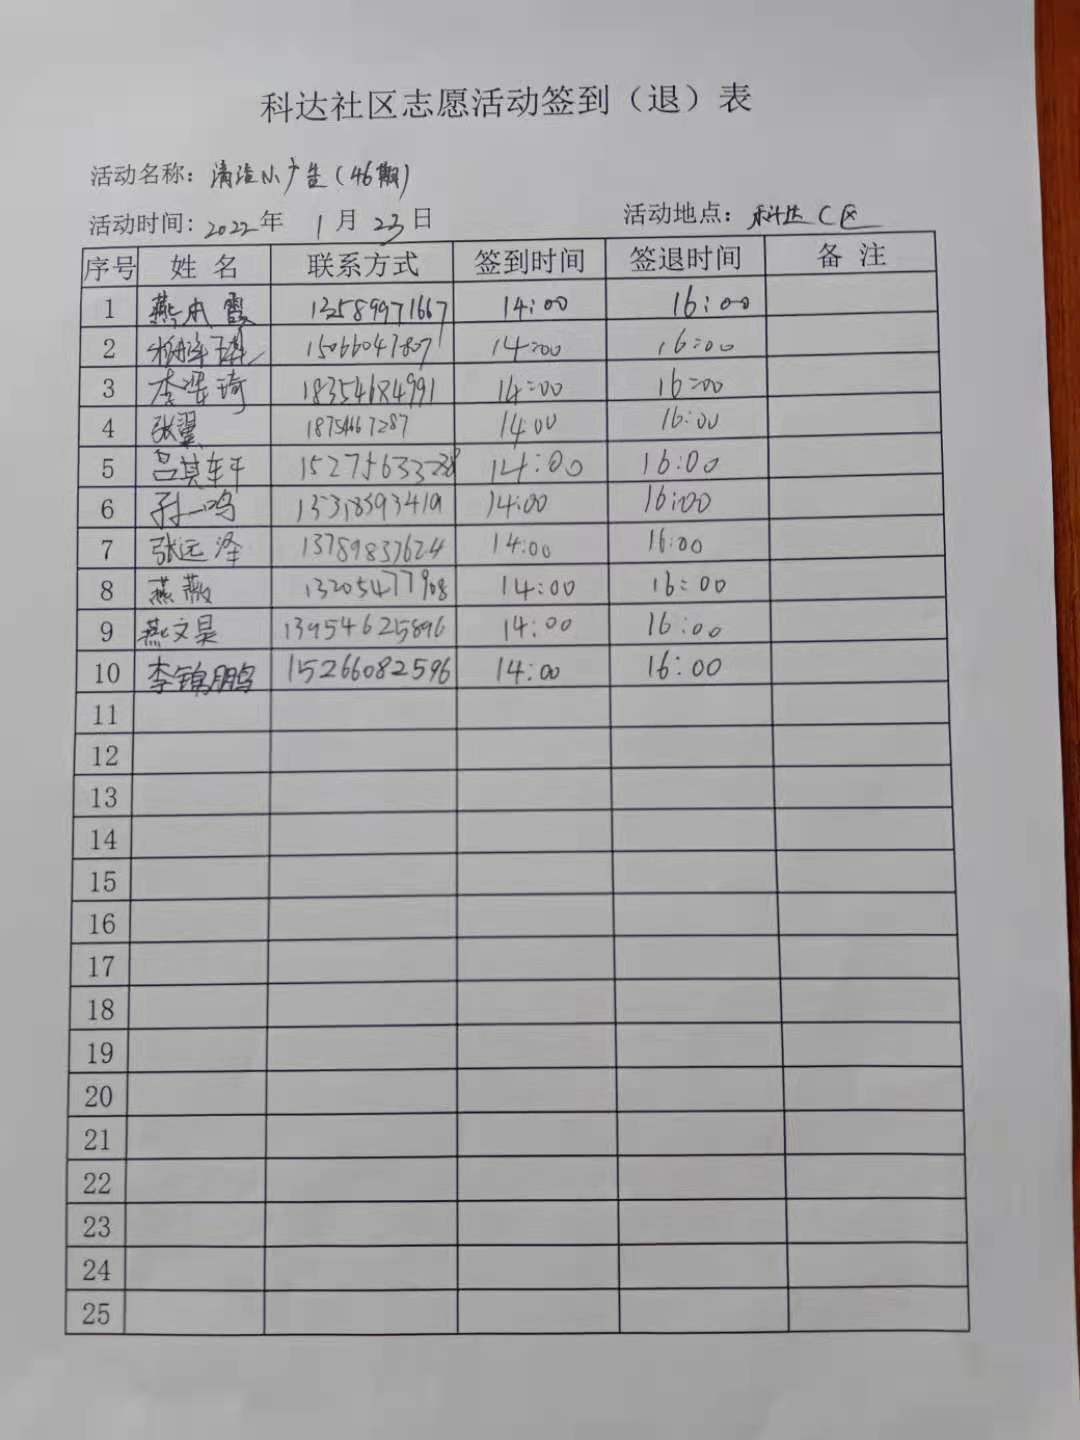 科达社区志愿活动签到（退）表
活动名称: 清洁小广告(46期)
活动时间: 2022年 1月 23日 活动地点: 科达C区
序号 姓名 联系方式 签到时间 签退时间 备注
1 燕本霞 13589971667 14:00 16:00
2 15066047807 14:00 16:00
3 李 琦 18354684991 14:00 16:00
4 张翼 18754667287 14:00 16:00
5 吕其轩 14:00 16:00
6 孙一鸣 14:00 16:00
7 张远泽 13789837624 14:00 16:00
8 燕薇 13205477908 14:00 16:00
9 燕文昊 13954625896 14:00 16:00
10 李锦鹏 15266082596 14:00 16:00
11
12
13
14
15
16
17
18
19
20
21
22
23
24
25